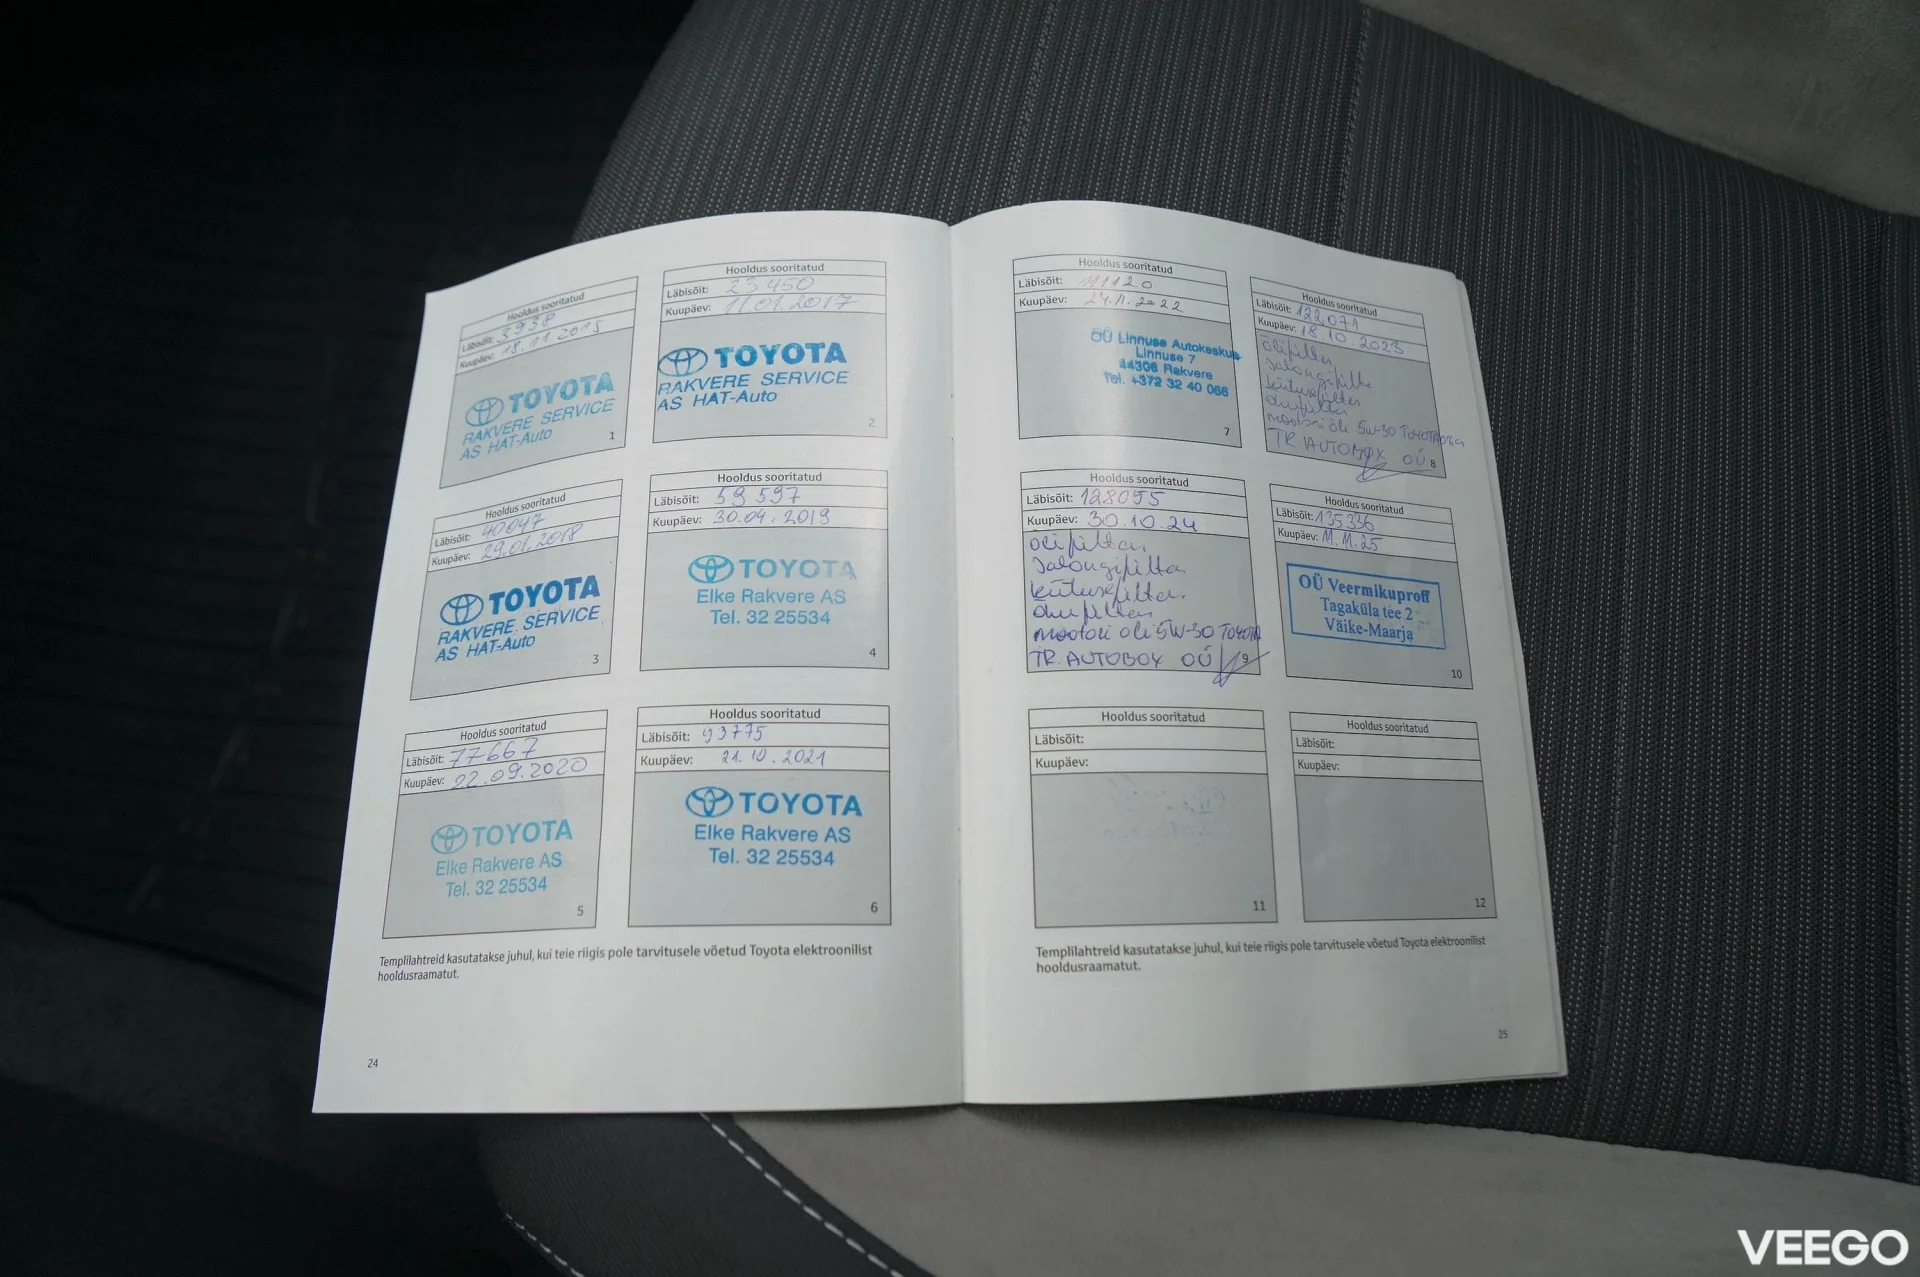 Hooldus sooritatud
Läbisõit: 3938
Kuupäev: 18.11.2015
TOYOTA
RAKVERE SERVICE
AS HAT-Auto
1
Hooldus sooritatud
Läbisõit: 23450
Kuupäev: 11.01.2017
TOYOTA
RAKVERE SERVICE
AS HAT-Auto
2
Hooldus sooritatud
Läbisõit: 40047
Kuupäev: 29.01.2018
TOYOTA
RAKVERE SERVICE
AS HAT-Auto
3
Hooldus sooritatud
Läbisõit: 59597
Kuupäev: 30.04.2019
TOYOTA
Elke Rakvere AS
Tel. 32 25534
4
Hooldus sooritatud
Läbisõit: 77667
Kuupäev: 22.09.2020
TOYOTA
Elke Rakvere AS
Tel. 32 25534
5
Hooldus sooritatud
Läbisõit: 93775
Kuupäev: 21.10.2021
TOYOTA
Elke Rakvere AS
Tel. 32 25534
6
Templilahtreid kasutatakse juhul, kui teie riigis pole tarvitusele võetud Toyota elektroonilist
hooldusraamatut.
24
Hooldus sooritatud
Läbisõit: 111120
Kuupäev: 24.11.2022
OÜ Linnuse Autokeskus
Linnuse 7
44306 Rakvere
Tel. +372 32 40 066
7
Hooldus sooritatud
Läbisõit: 122071
Kuupäev: 18.10.2023
õlifilter,
salongifilter
kütusefilter
õhufilter
mootori õli 5W-30 TOYOTA
TR. AUTOBOX OÜ
8
Hooldus sooritatud
Läbisõit: 128095
Kuupäev: 30.10.24
õlifilter,
salongifilter
kütusefilter,
õhufilter,
mootori õli 5W-30 TOYOTA
TR. AUTOBOX OÜ
9
Hooldus sooritatud
Läbisõit: 135336
Kuupäev: 11.11.25
OÜ Veermikuproff
Tagaküla tee 2
Väike-Maarja
10
Hooldus sooritatud
Läbisõit:
Kuupäev:
11
Hooldus sooritatud
Läbisõit:
Kuupäev:
12
Templilahtreid kasutatakse juhul, kui teie riigis pole tarvitusele võetud Toyota elektroonilist
hooldusraamatut.
25
VEEGO